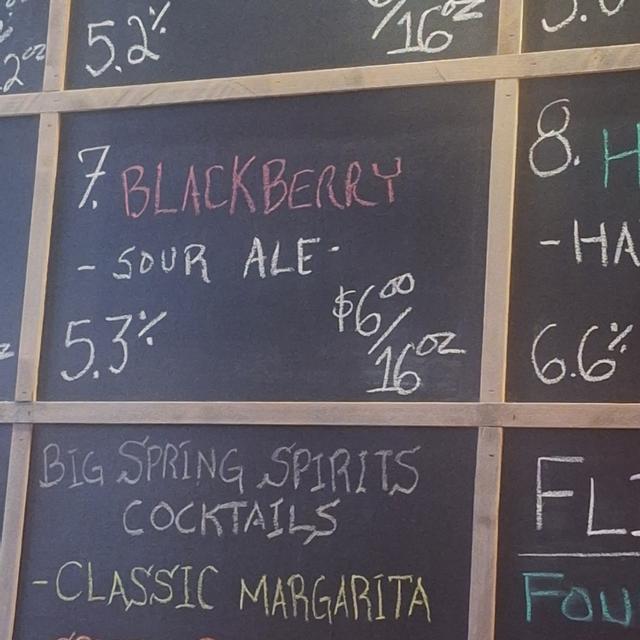 5.2%
/16oz
7. BLACKBERRY
- SOUR ALE -
5.3%
$6.00/16oz
BIG SPRING SPIRITS
COCKTAILS
- CLASSIC MARGARITA
8. H
- HA
6.6%
FL
FOU